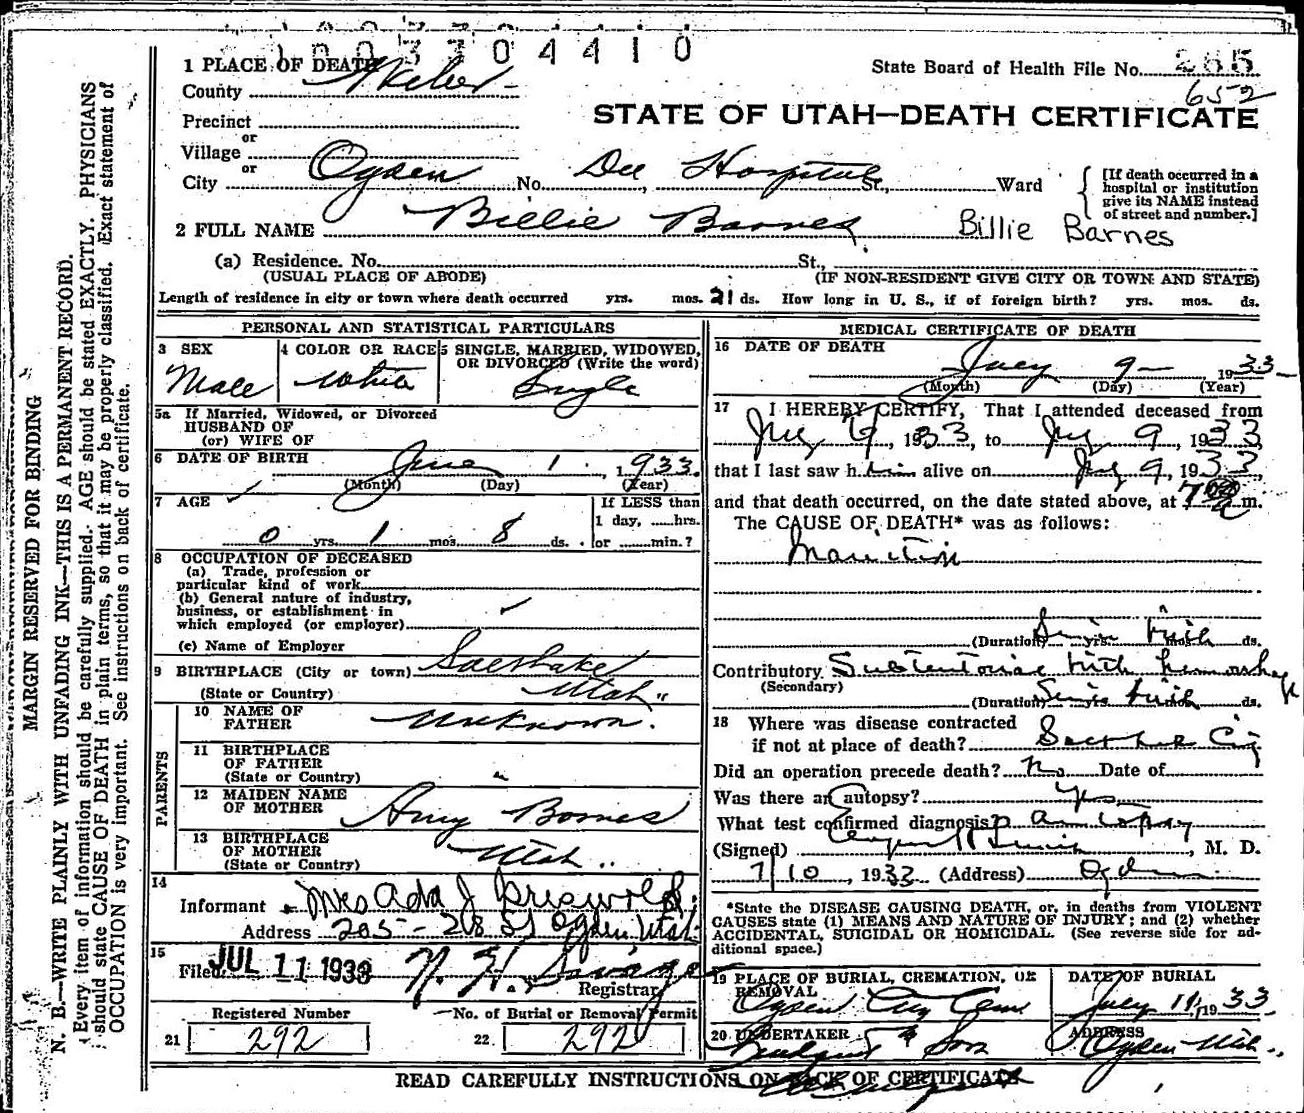 1003704410
1 PLACE OF DEATH
State Board of Health File No. 265
652
County Weber
STATE OF UTAH—DEATH CERTIFICATE
Precinct
or
Village
or
City Ogden No. Dee Hospital St., Ward
[If death occurred in a
hospital or institution
give its NAME instead
of street and number.]
2 FULL NAME Billie Barnes Billie Barnes
(a) Residence. No. St.,
(USUAL PLACE OF ABODE) (IF NON-RESIDENT GIVE CITY OR TOWN AND STATE)
Length of residence in city or town where death occurred yrs. mos. 21 ds. How long in U. S., if of foreign birth? yrs. mos. ds.
PERSONAL AND STATISTICAL PARTICULARS
3 SEX
Male
4 COLOR OR RACE
White
5 SINGLE, MARRIED, WIDOWED,
OR DIVORCED (Write the word)
Single
5a If Married, Widowed, or Divorced
HUSBAND OF
(or) WIFE OF
6 DATE OF BIRTH June 1 1933
(Month) (Day) (Year)
7 AGE
0 yrs. 1 mos. 8 ds.
If LESS than
1 day, hrs.
or min.?
8 OCCUPATION OF DECEASED
(a) Trade, profession or
particular kind of work
(b) General nature of industry,
business, or establishment in
which employed (or employer)
(c) Name of Employer
9 BIRTHPLACE (City or town) Salt Lake
(State or Country) Utah
PARENTS
10 NAME OF
FATHER Unknown.
11 BIRTHPLACE
OF FATHER
(State or Country)
12 MAIDEN NAME
OF MOTHER Amy Barnes
13 BIRTHPLACE
OF MOTHER
(State or Country) Utah
14
Informant Mrs Ada J Griswold
Address 205 - 28 St Ogden Utah
15
Filed JUL 11 1933 Savage
Registrar
Registered Number
21 292
No. of Burial or Removal Permit
22. 292
MEDICAL CERTIFICATE OF DEATH
16 DATE OF DEATH
July 9 1933
(Month) (Day) (Year)
17 I HEREBY CERTIFY, That I attended deceased from
July 1933, to July 9, 1933
that I last saw him alive on July 9, 1933
and that death occurred, on the date stated above, at 7 m.
The CAUSE OF DEATH* was as follows:
Inanition
(Duration) Since birth yrs. mos. ds.
Contributory Subtentorial birth hemorrhage
(Secondary)
(Duration) Since birth yrs. ds.
18 Where was disease contracted
if not at place of death? Salt Lake City
Did an operation precede death? No Date of
Was there an autopsy? Yes
What test confirmed diagnosis? Autopsy
(Signed) Smith, M. D.
7/10, 1933 (Address) Ogden
*State the DISEASE CAUSING DEATH, or, in deaths from VIOLENT
CAUSES state (1) MEANS AND NATURE OF INJURY; and (2) whether
ACCIDENTAL, SUICIDAL OR HOMICIDAL. (See reverse side for ad-
ditional space.)
19 PLACE OF BURIAL, CREMATION, OR
REMOVAL
Ogden City Cem
DATE OF BURIAL
July 11, 1933
20 UNDERTAKER
& Sons
ADDRESS
Ogden Utah
READ CAREFULLY INSTRUCTIONS ON BACK OF CERTIFICATE
MARGIN RESERVED FOR BINDING
N. B.—WRITE PLAINLY WITH UNFADING INK—THIS IS A PERMANENT RECORD.
Every item of information should be carefully supplied. AGE should be stated EXACTLY. PHYSICIANS
should state CAUSE OF DEATH in plain terms, so that it may be properly classified. Exact statement of
OCCUPATION is very important. See instructions on back of certificate.